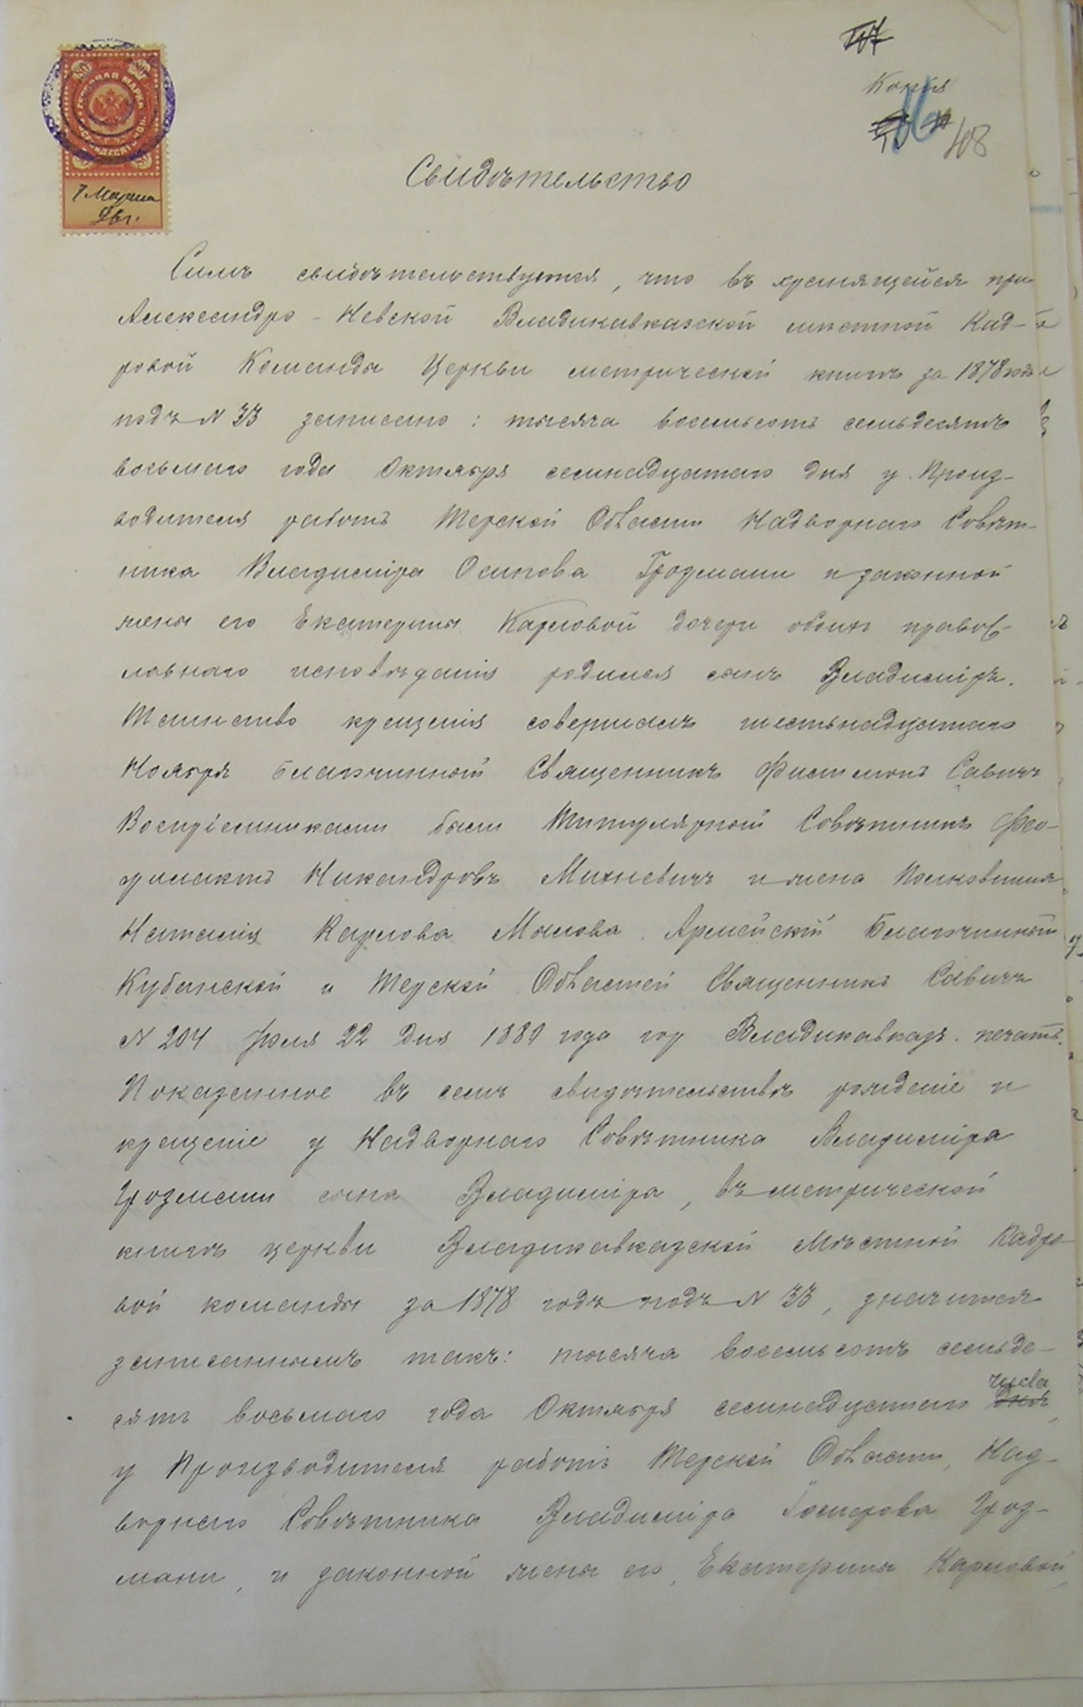 Копія
108
7 Марта
96 г.
Свидѣтельство
Симъ свидѣтельствуется, что въ хранящейся при
Александро-Невской Владикавказской мѣстной Кад-
ровой Команды Церкви метрической книгѣ за 1878 годъ
подъ N 33 записано: тысяча восемьсотъ семьдесятъ
восьмаго года Октября семнадцатаго дня у Произ-
водителя работъ Терской Области Надворнаго Совѣт-
ника Владиміра Осипова Грозмани и законной
жены его Екатерины Карловой дочери обоихъ правос-
лавнаго исповѣданія родился сынъ Владиміръ.
Таинство крещенія совершалъ шестьнадцатаго
Ноября благочинной Священникъ Филимонъ Савичъ
Воспріемниками были Титулярной Совѣтникъ Фео-
филактъ Никандровъ Михневичъ и жена Полковника
Наталія Карлова Малова. Армейскій Благочинной
Кубанской и Терской Областей Священникъ Савичъ
N 204 Іюля 22 дня 1880 года гор Владикавказъ. печать.
Показанное въ семъ свидѣтельствѣ рожденіе и
крещеніе у Надворнаго Совѣтника Владиміра
Грозмани сына Владиміра, въ метрической
книгѣ церкви Владикавказской Мѣстной Кадро-
вой команды за 1878 годъ подъ N 33, значится
записаннымъ такъ: тысяча восемьсотъ семьде-
сятъ восьмаго года Октября семнадцатаго числа
у Производителя работъ Терской Области, Над-
ворнаго Совѣтника Владиміра Іосифова Гроз-
мани, и законной жены его, Екатерины Карловой,